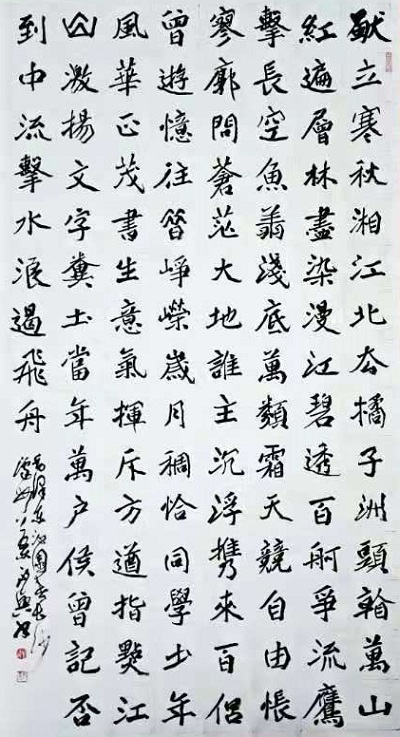 獨立寒秋湘江北去橘子洲頭看萬山
紅遍層林盡染漫江碧透百舸爭流鷹
擊長空魚翔淺底萬類霜天競自由悵
寥廓問蒼茫大地誰主沉浮攜來百侶
曾遊憶往昔崢嶸歲月稠恰同學少年
風華正茂書生意氣揮斥方遒指點江
山激揚文字糞土當年萬戶侯曾記否
到中流擊水浪遏飛舟
毛澤東沁園春長沙